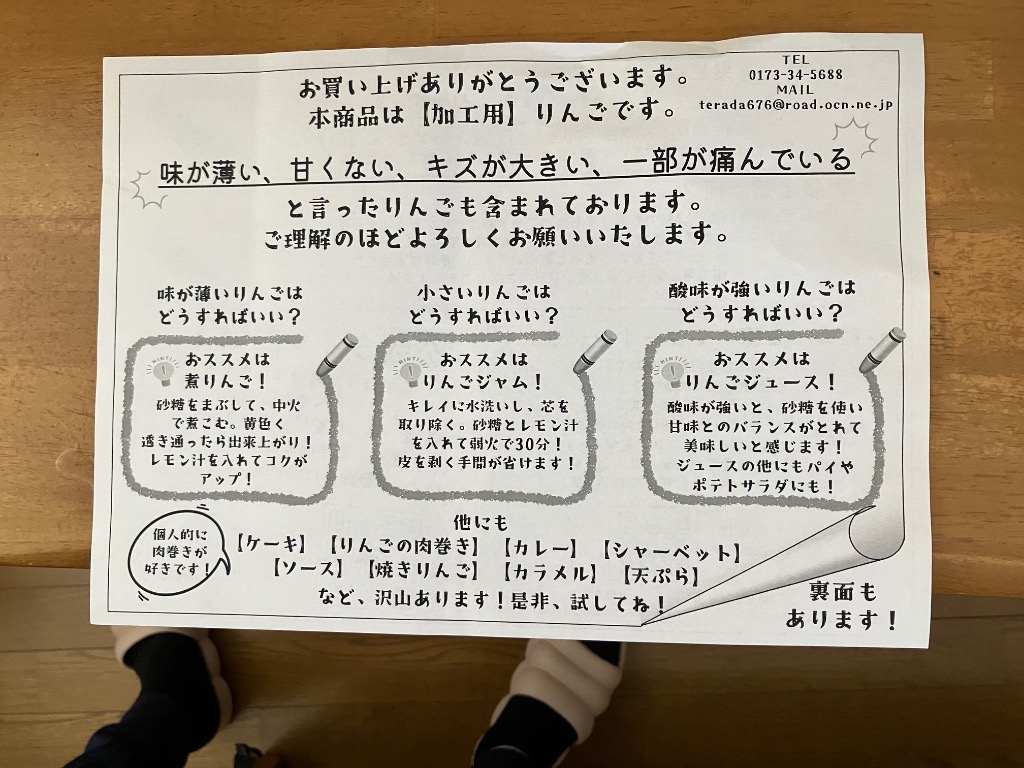 お買い上げありがとうございます。
本商品は【加工用】りんごです。
TEL
0173-34-5688
MAIL
terada676@road.ocn.ne.jp
味が薄い、甘くない、キズが大きい、一部が痛んでいる
と言ったりんごも含まれております。
ご理解のほどよろしくお願いいたします。
味が薄いりんごは
どうすればいい？
HINT!
おススメは
煮りんご！
砂糖をまぶして、中火
で煮こむ。黄色く
透き通ったら出来上がり！
レモン汁を入れてコクが
アップ！
小さいりんごは
どうすればいい？
HINT!
おススメは
りんごジャム！
キレイに水洗いし、芯を
取り除く。砂糖とレモン汁
を入れて弱火で30分！
皮を剥く手間が省けます！
酸味が強いりんごは
どうすればいい？
HINT!
おススメは
りんごジュース！
酸味が強いと、砂糖を使い
甘味とのバランスがとれて
美味しいと感じます！
ジュースの他にもパイや
ポテトサラダにも！
個人的に
肉巻きが
好きです！
他にも
【ケーキ】【りんごの肉巻き】【カレー】【シャーベット】
【ソース】【焼きりんご】【カラメル】【天ぷら】
など、沢山あります！是非、試してね！
裏面も
あります！